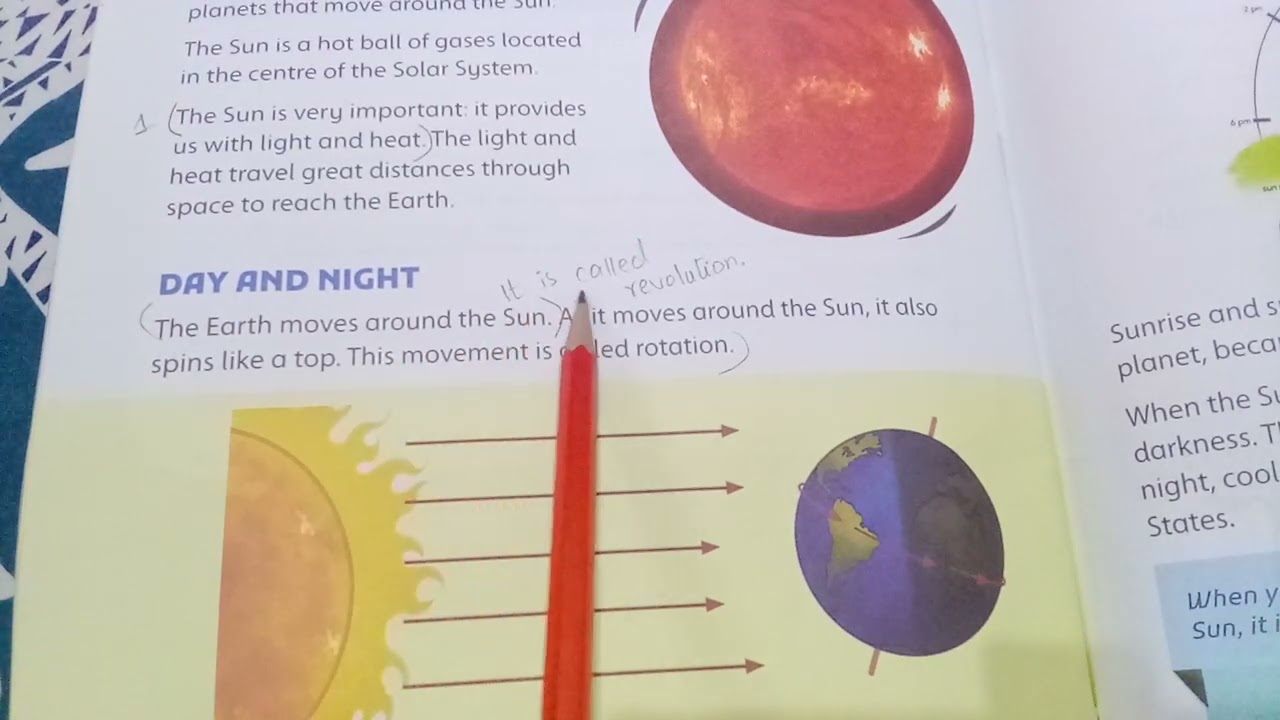 planets that move around the Sun.
The Sun is a hot ball of gases located
in the centre of the Solar System.
1 (The Sun is very important: it provides
us with light and heat.) The light and
heat travel great distances through
space to reach the Earth.
DAY AND NIGHT
It is called
revolution.
(The Earth moves around the Sun.) it moves around the Sun, it also
spins like a top. This movement is rotation.)
2 pm
6 pm
sun
Sunrise and s
planet, beca
When the Su
darkness. T
night, cool
States.
When y
Sun, it i